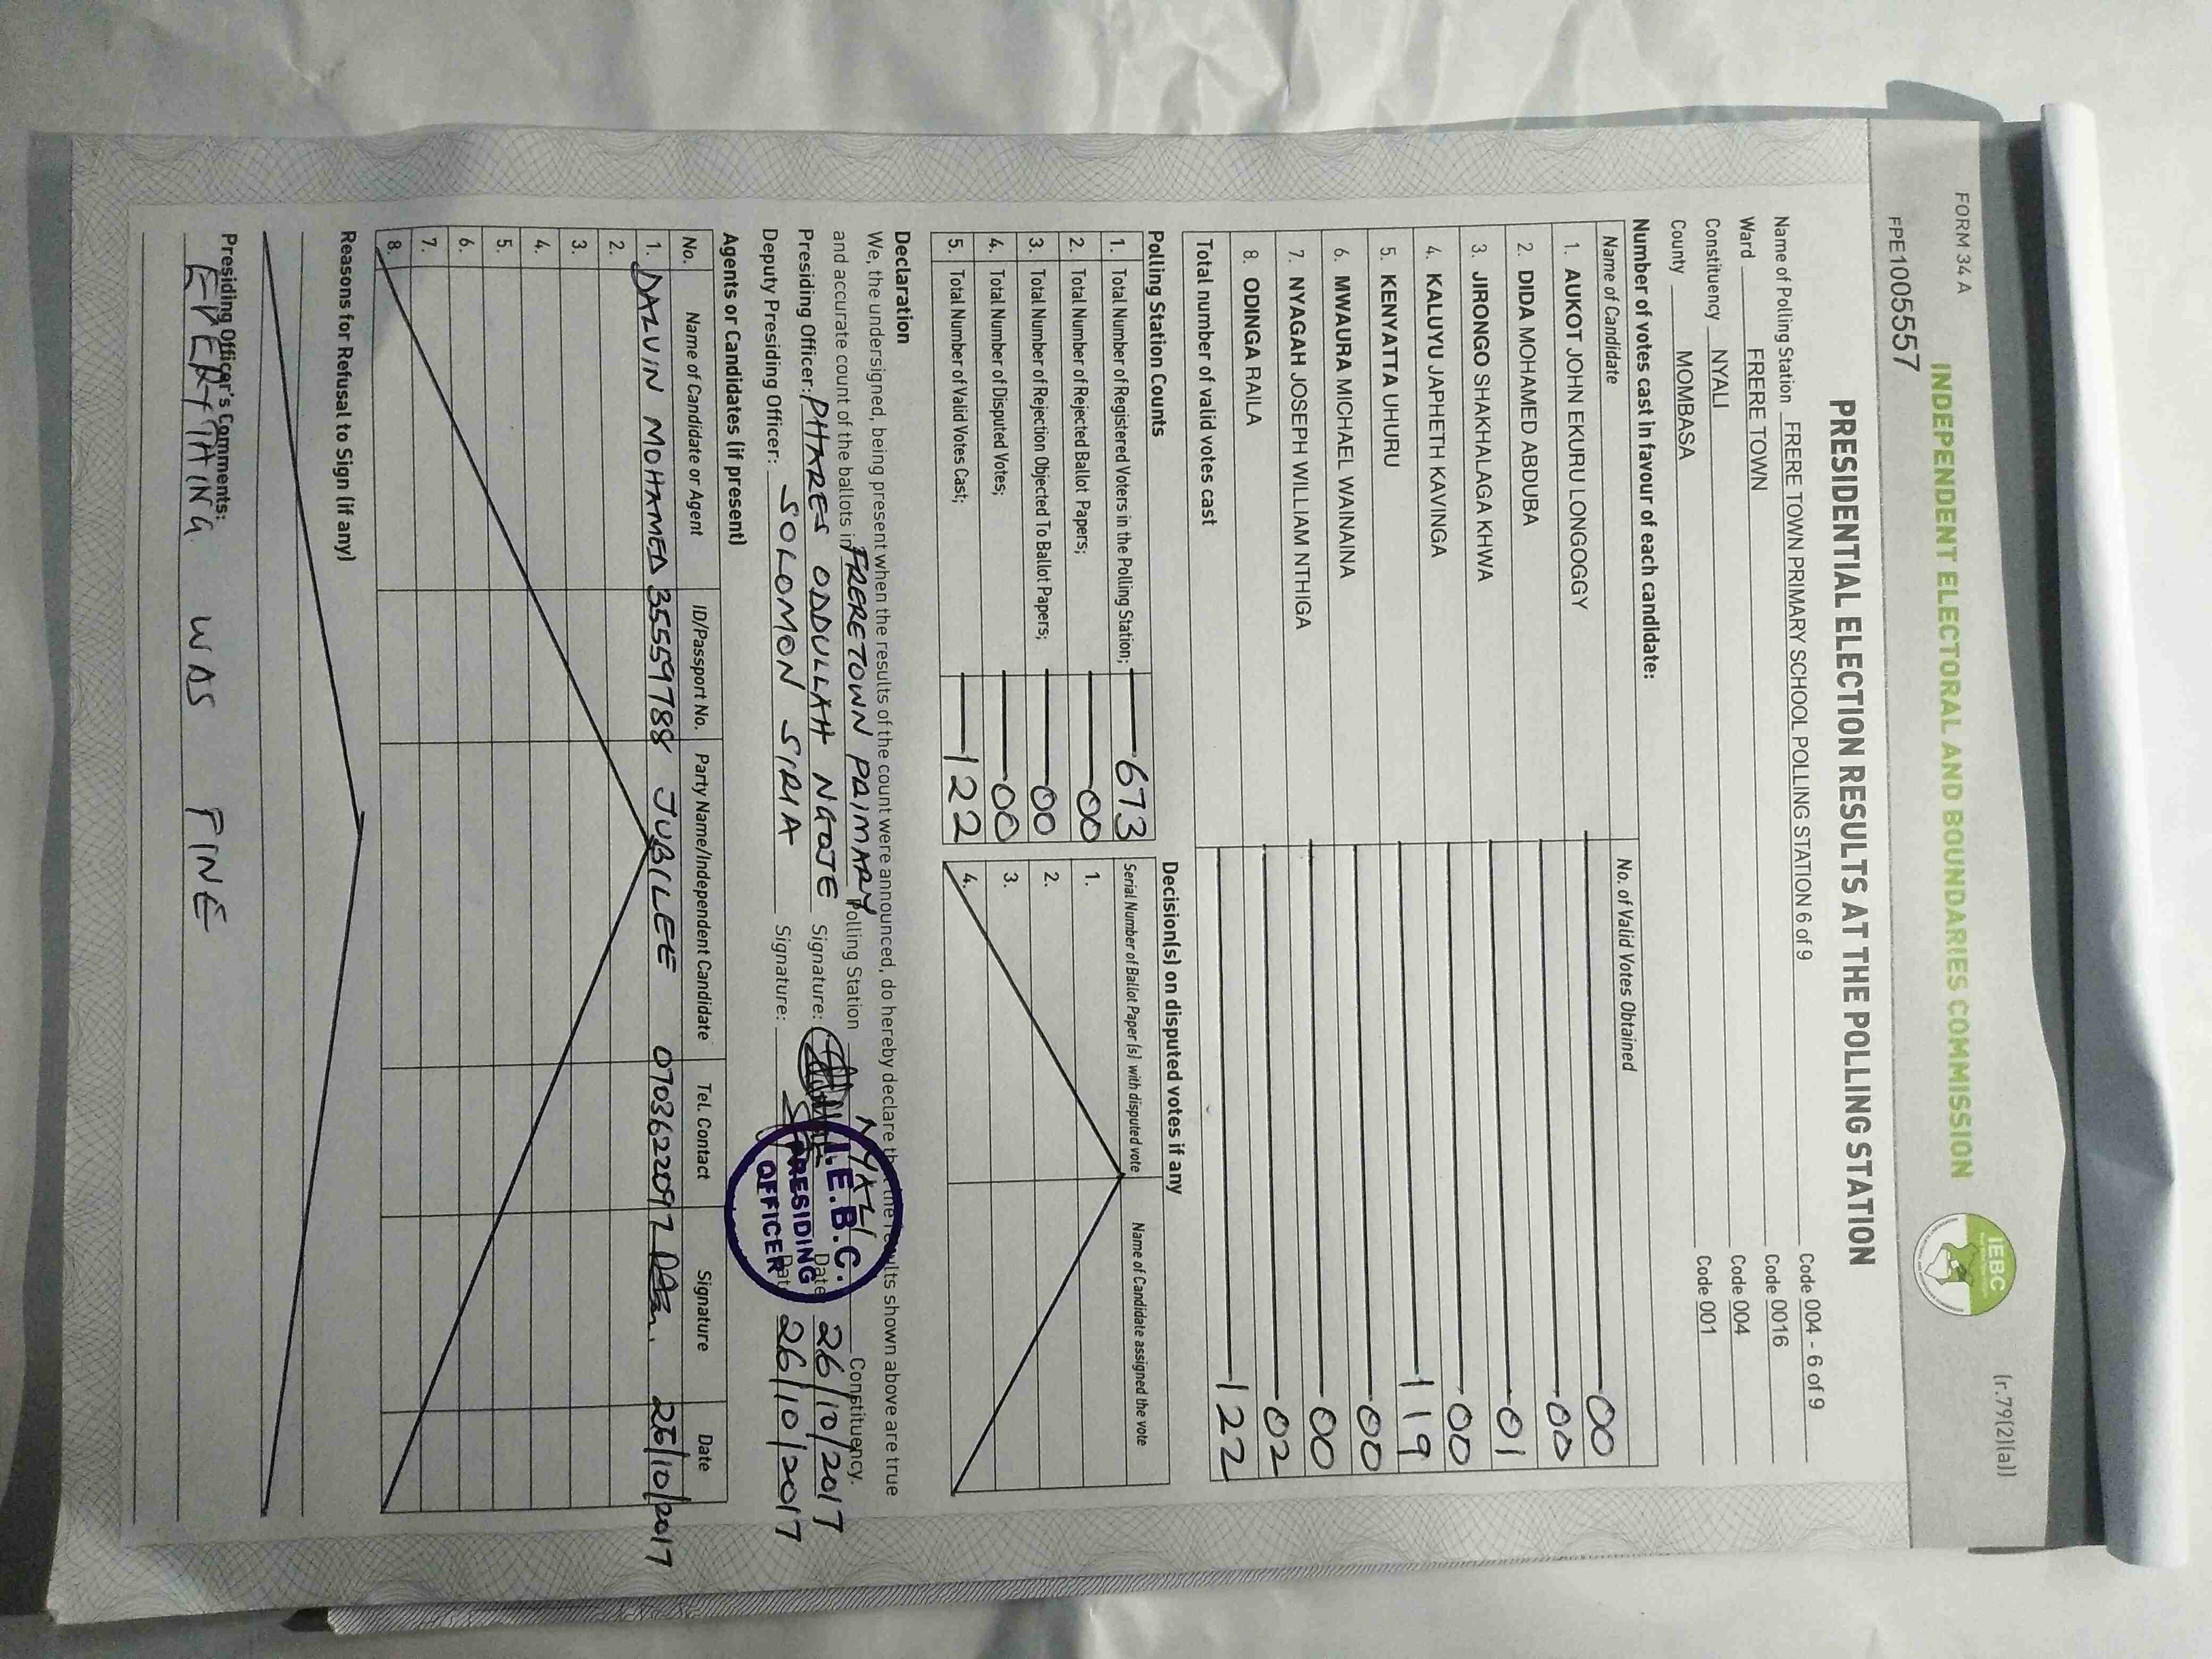 FORM 34 A
(r.79(2)(a))
INDEPENDENT ELECTORAL AND BOUNDARIES COMMISSION
IEBC
FPE1005557
PRESIDENTIAL ELECTION RESULTS AT THE POLLING STATION
Name of Polling Station FRERE TOWN PRIMARY SCHOOL POLLING STATION 6 of 9 Code 004 - 6 of 9
Ward FRERE TOWN Code 0016
Constituency NYALI Code 004
County MOMBASA Code 001
Number of votes cast in favour of each candidate:
Name of Candidate No. of Valid Votes Obtained
1. AUKOT JOHN EKURU LONGOGGY 00
2. DIDA MOHAMED ABDUBA 00
3. JIRONGO SHAKHALAGA KHWA 01
4. KALUYU JAPHETH KAVINGA 00
5. KENYATTA UHURU 119
6. MWAURA MICHAEL WAINAINA 00
7. NYAGAH JOSEPH WILLIAM NTHIGA 00
8. ODINGA RAILA 02
Total number of valid votes cast 122
Polling Station Counts
1. Total Number of Registered Voters in the Polling Station; 673
2. Total Number of Rejected Ballot Papers; 00
3. Total Number of Rejection Objected To Ballot Papers; 00
4. Total Number of Disputed Votes; 00
5. Total Number of Valid Votes Cast; 122
Decision(s) on disputed votes if any
Serial Number of Ballot Paper (s) with disputed vote Name of Candidate assigned the vote
1.
2.
3.
4.
Declaration
We, the undersigned, being present when the results of the count were announced, do hereby declare that the results shown above are true
and accurate count of the ballots in FRERETOWN PRIMARY Polling Station NYALI Constituency.
Presiding Officer: PHARES ODDULLAH NGOJE Signature: Date 26/10/2017
Deputy Presiding Officer: SOLOMON SIRIA Signature: Date 26/10/2017
I.E.B.C.
PRESIDING
OFFICER
Agents or Candidates (if present)
No. Name of Candidate or Agent ID/Passport No. Party Name/Independent Candidate Tel. Contact Signature Date
1. DALVIN MOHAMED 35559788 JUBILEE 0703622097 26/10/2017
2.
3.
4.
5.
6.
7.
8.
Reasons for Refusal to Sign (if any)
Presiding Officer's Comments:
EVERYTHING WAS FINE